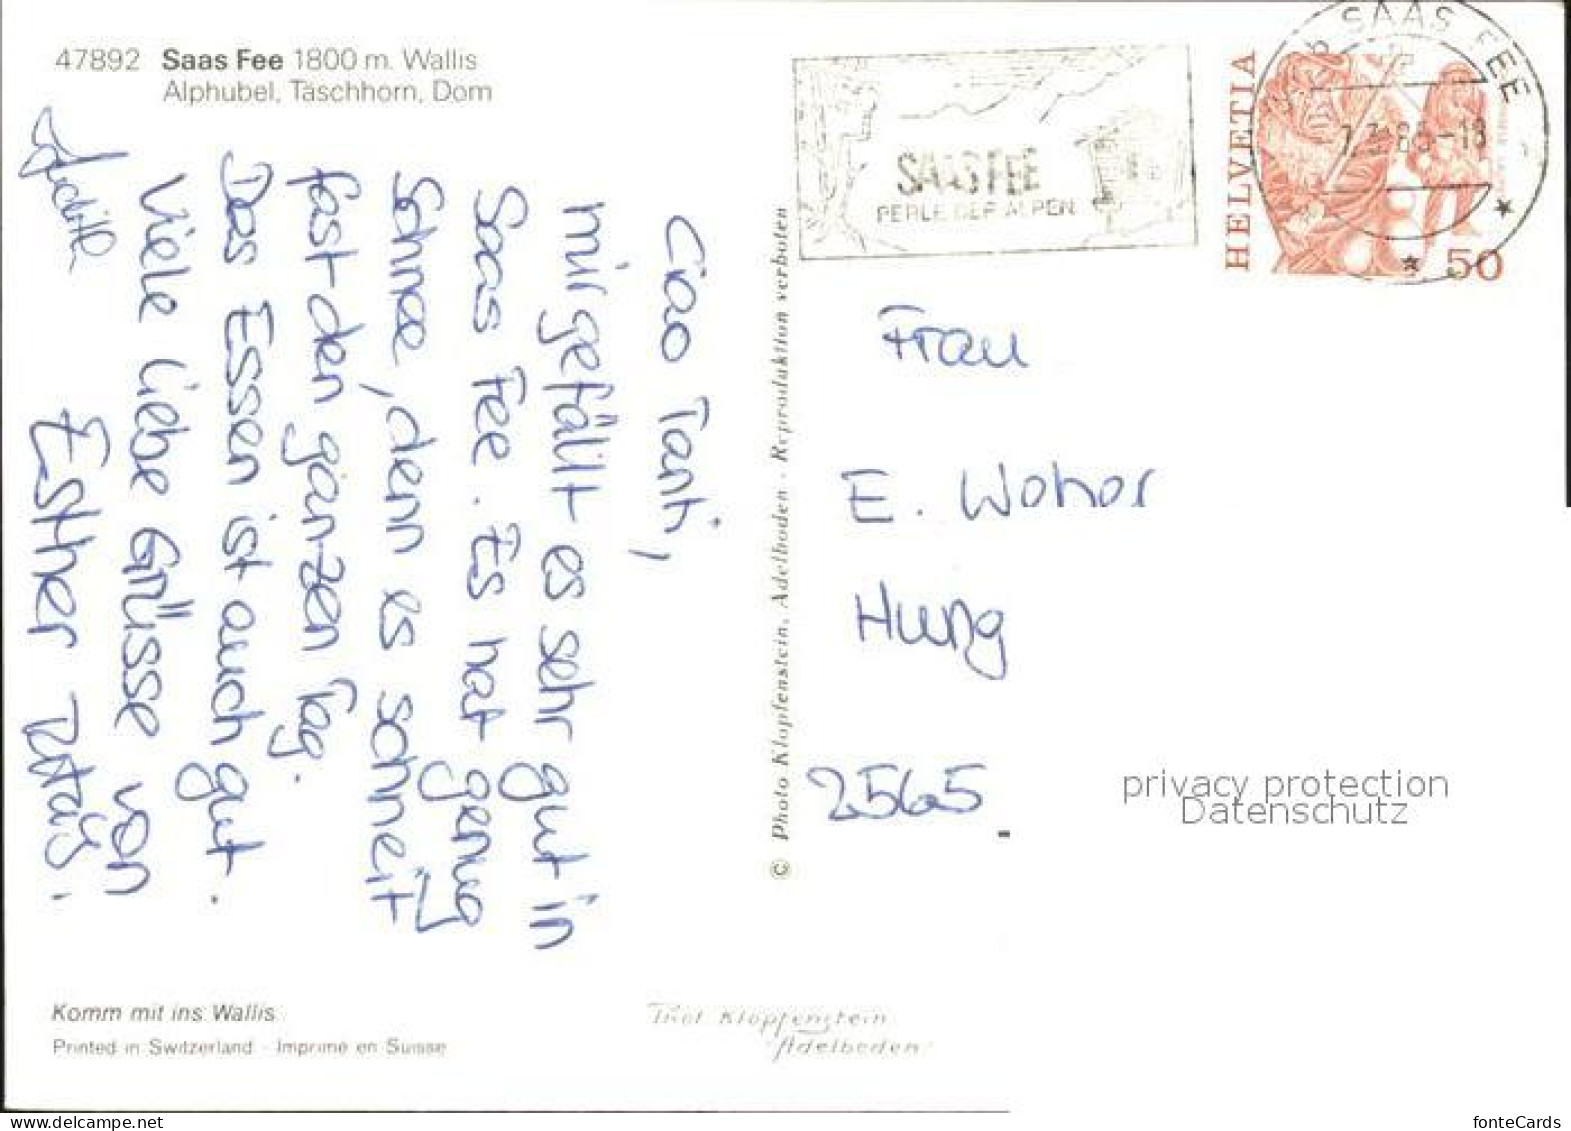 47892 Saas Fee 1800 m. Wallis
Alphubel, Täschhorn, Dom
Ciao Tanti,
mir gefällt es sehr gut in
Saas Fee. Es hat genug
Schnee, denn es schneit
fast den ganzen Tag.
Das Essen ist auch gut.
Viele liebe Grüsse von
Esther
Judith
© Photo Klopfenstein, Adelboden - Reproduktion verboten
SAAS FEE
PERLE DER ALPEN
HELVETIA
50
SAAS FEE
-18
Frau
E.
2565
privacy protection
Datenschutz
Komm mit ins Wallis
Printed in Switzerland - Imprimé en Suisse
Klopfenstein
Adelboden
www.delcampe.net
fonteCards